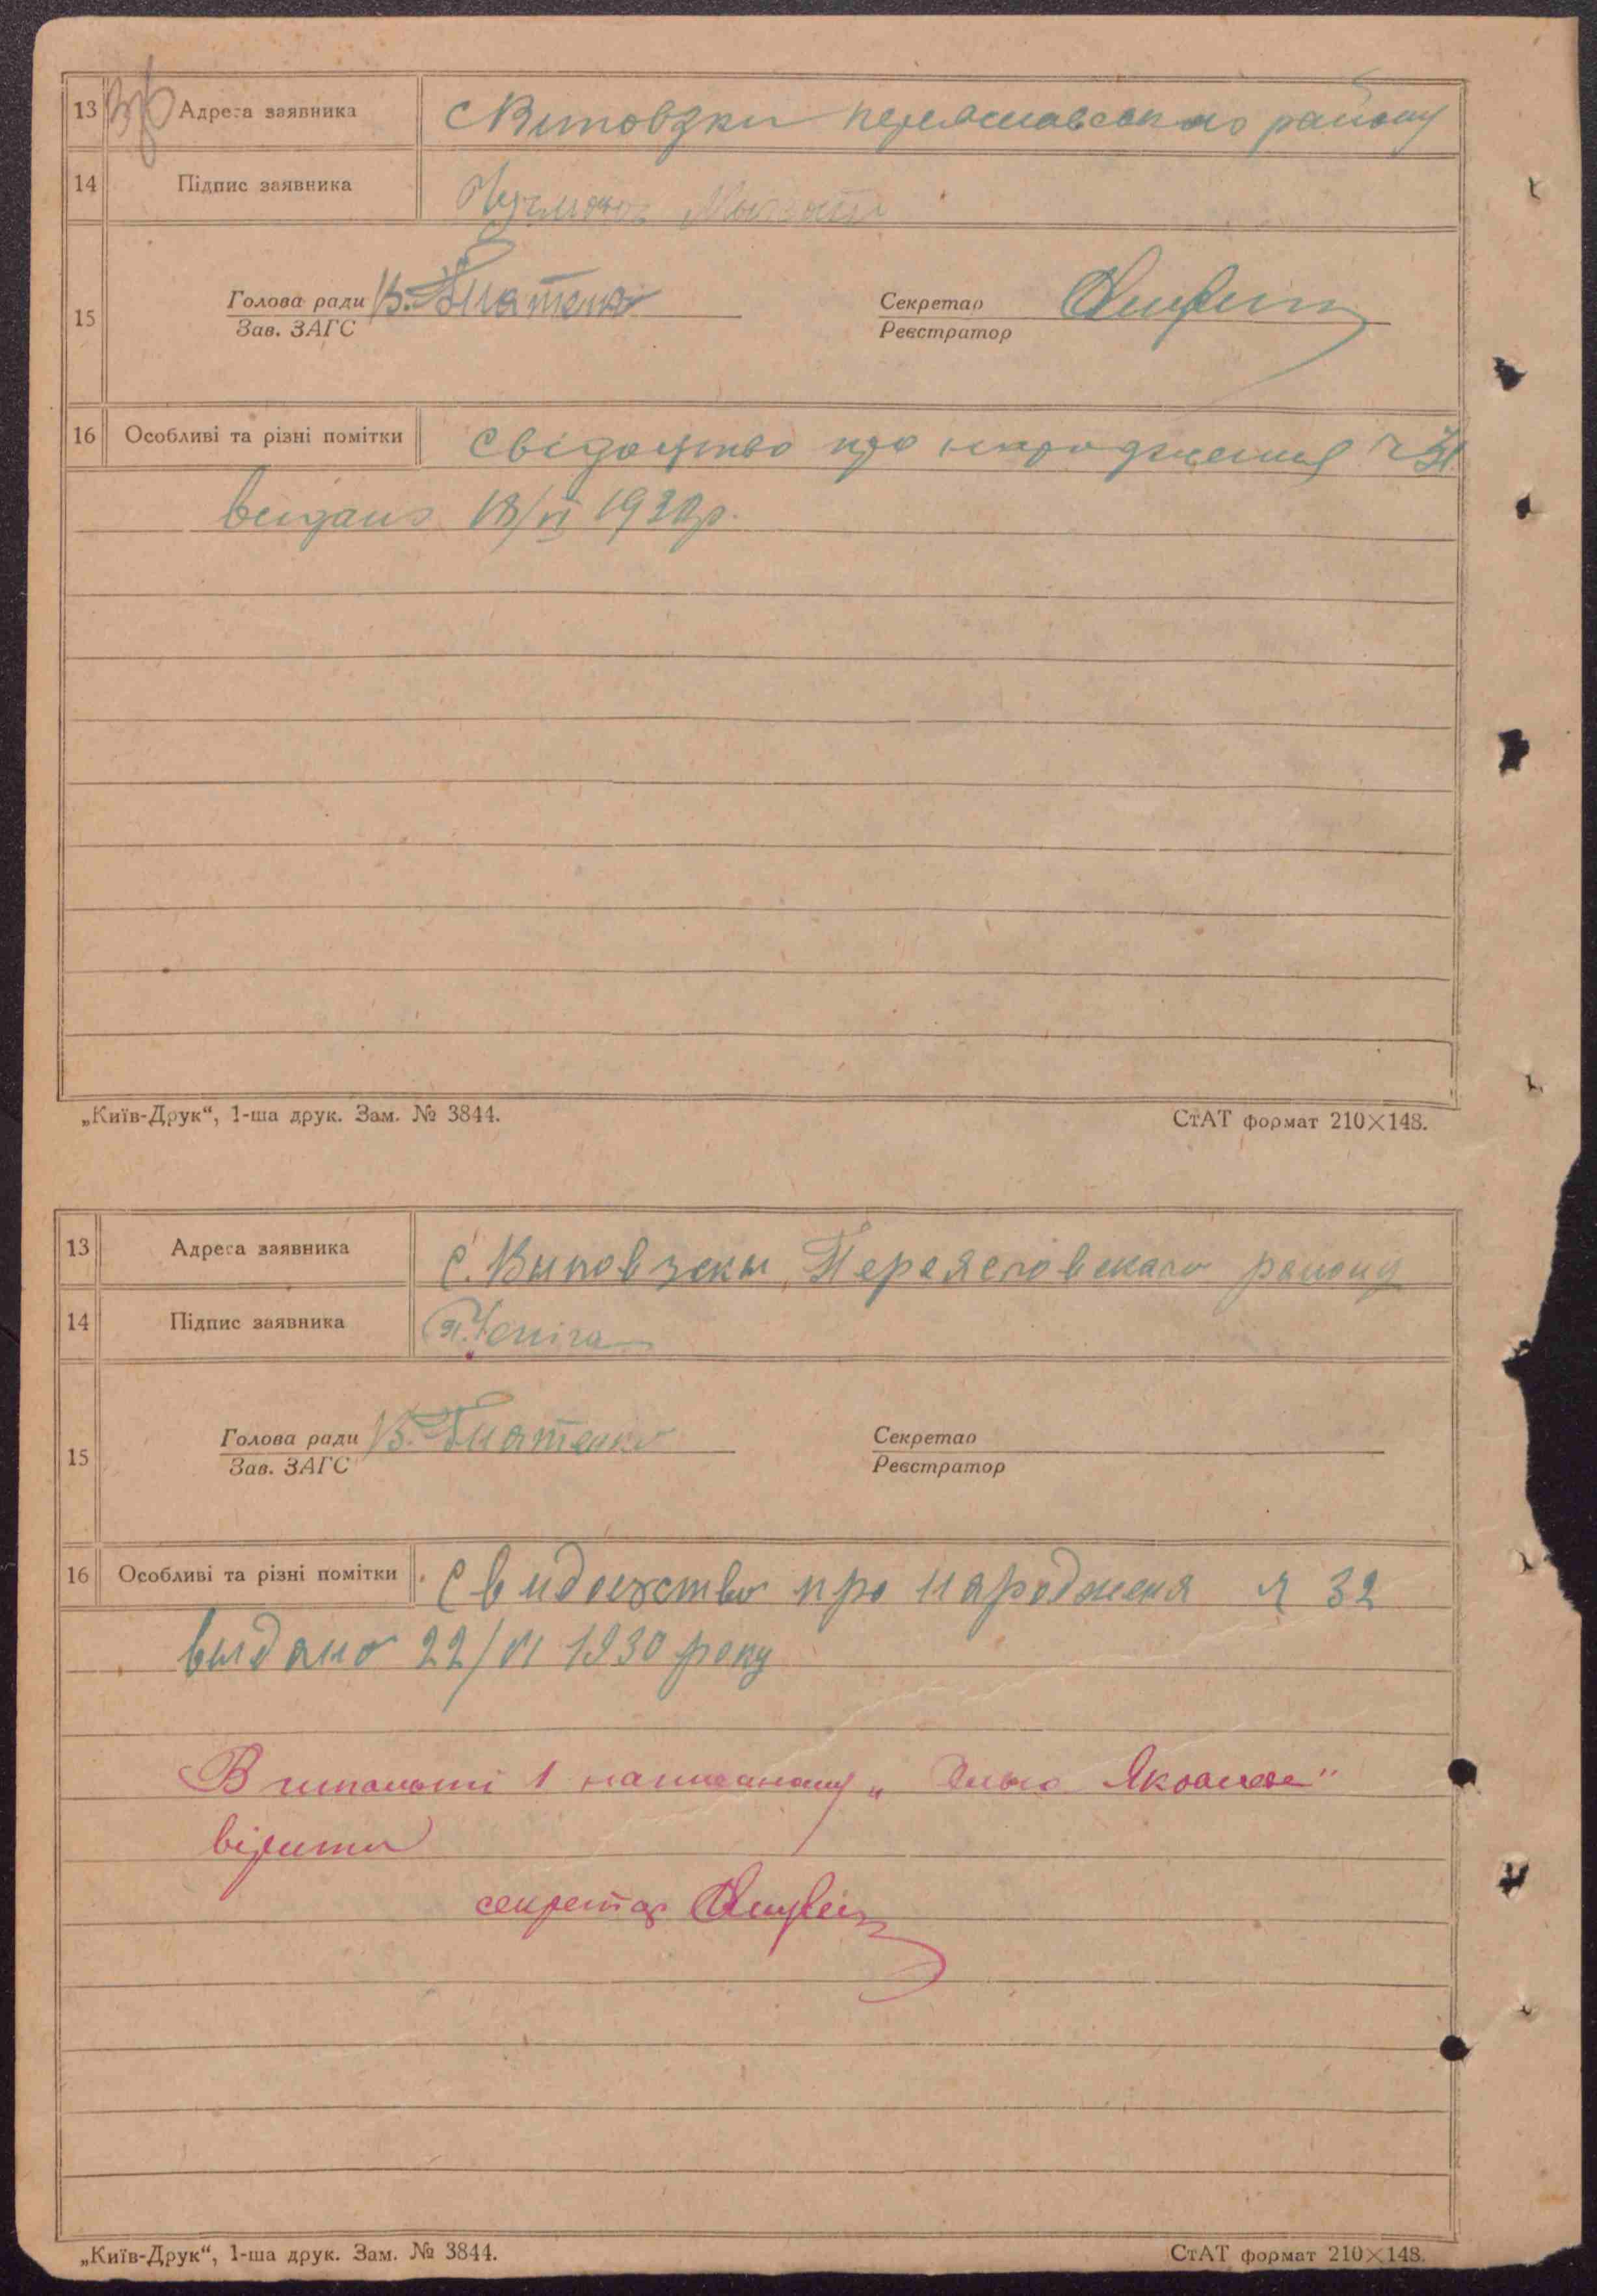 13 Адреса заявника с Виповзки переяславського району
14 Підпис заявника
Голова ради В. Гнатенко Секретар
15
Зав. ЗАГС Реєстратор
16 Особливі та різні помітки Свідоцтво про народження ч 31
видано 18/VI 1930р.
„Київ-Друк“, 1-ша друк. Зам. № 3844. СтАТ формат 210×148.
13 Адреса заявника с. Выповзкы Переясловского району
14 Підпис заявника
Голова ради В. Гнатенко Секретар
15
Зав. ЗАГС Реєстратор
16 Особливі та різні помітки Свидоцтво про народженя ч 32
выдано 22/VI 1930 року
В 1 написаному „
вірити
секретар
„Київ-Друк“, 1-ша друк. Зам. № 3844. СтАТ формат 210×148.